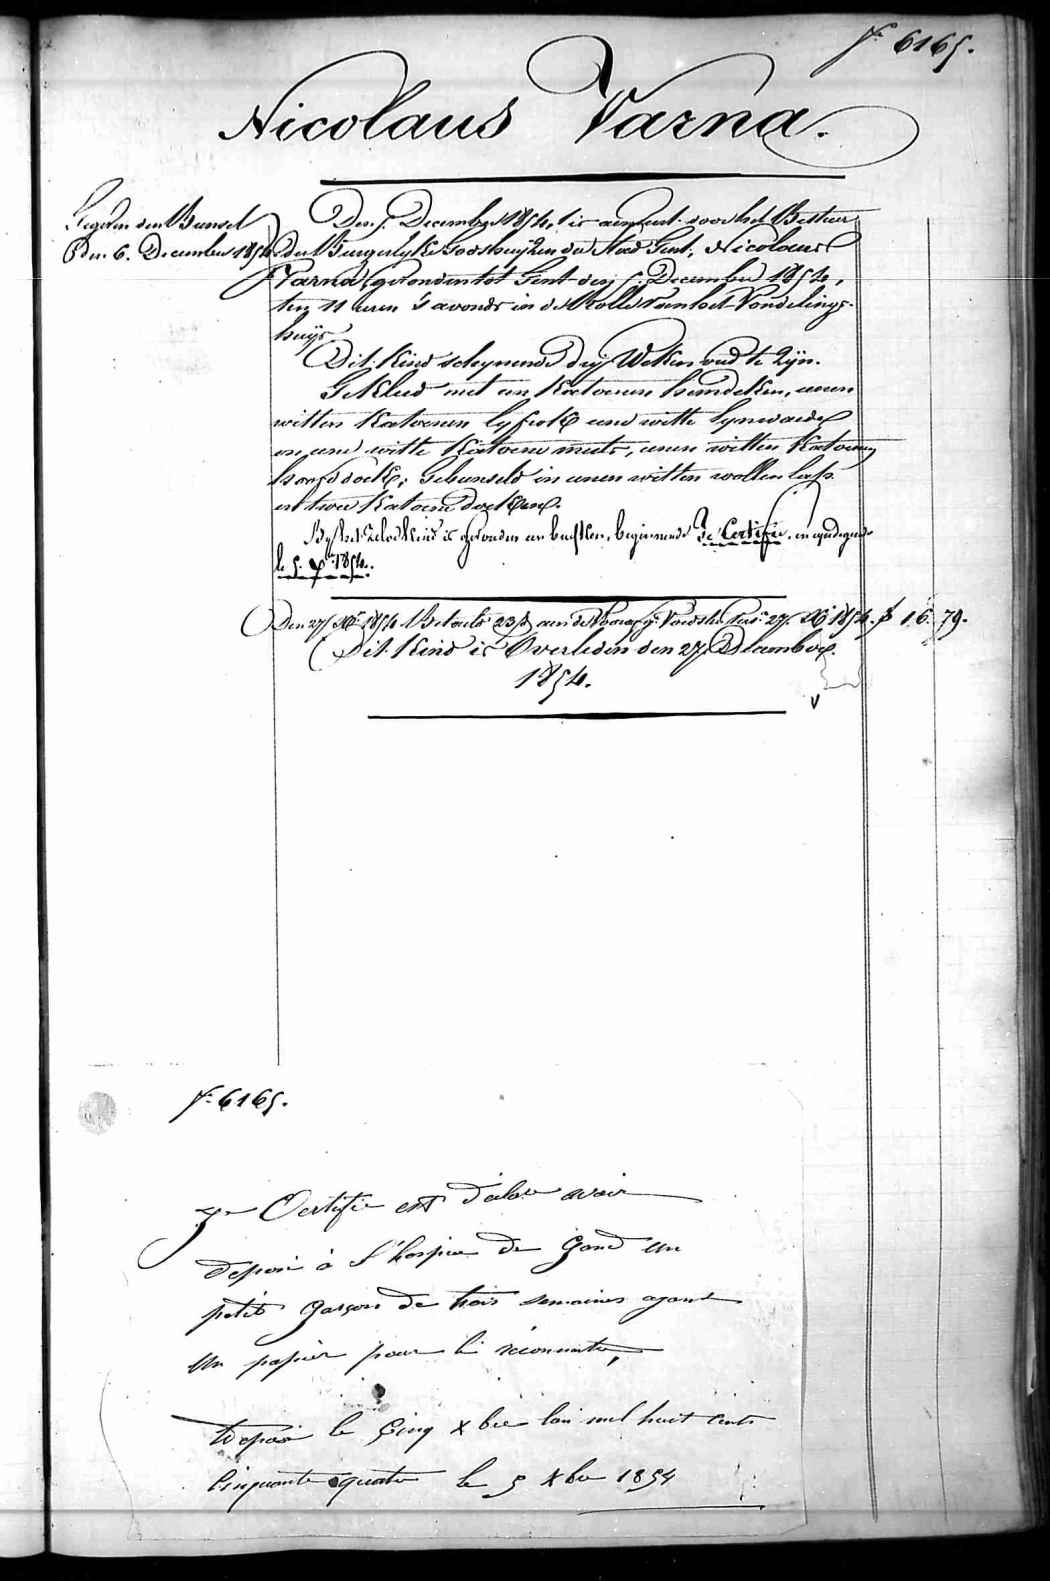 N.º 6165.
Nicolaus Varna.
Gegeven den Bunsel
Den 6. December 1854
Den 5. December 1854, is aenveert door het Bestuer
der Burgerlyke Godshuyzen der Stad Gent, Nicolaus
Varna, gevonden tot Gent den 5. December 1854,
ten 11 uren 's avonds in de Rolle van het Vondelings-
huys
Dit Kind schynende dry Weken oud te Zyn.
Gekleed met een Katoenen hemdeken, eenen
witten Katoenen lyfrok eene witte lynwaede
en eene witte Katoene muts, eenen witten Katoenen
hoofddoek; Gebunseld in eenen witten wollen lap
en twee Katoene doeken.
By het zelve kind is gevonden een briefken, beginnende Je Certifie, en eyndigende
le 5. Xbre 1854.
Den 27 Xbr 1854 Betaeld 23 d. aen de 27. Xbr 1854. f 1.6. 79.
Dit Kind is Overleden den 27. December
1854.
N.º 6165.
Je Certifie est avoir
deposé à l'hospice de Gand un
petit garçon de trois semaines ayant
un papier pour le réconnaitre,
Deposé le Cinq Xbre lan mil huit Cents
Cinquante quatre le 5 Xbre 1854